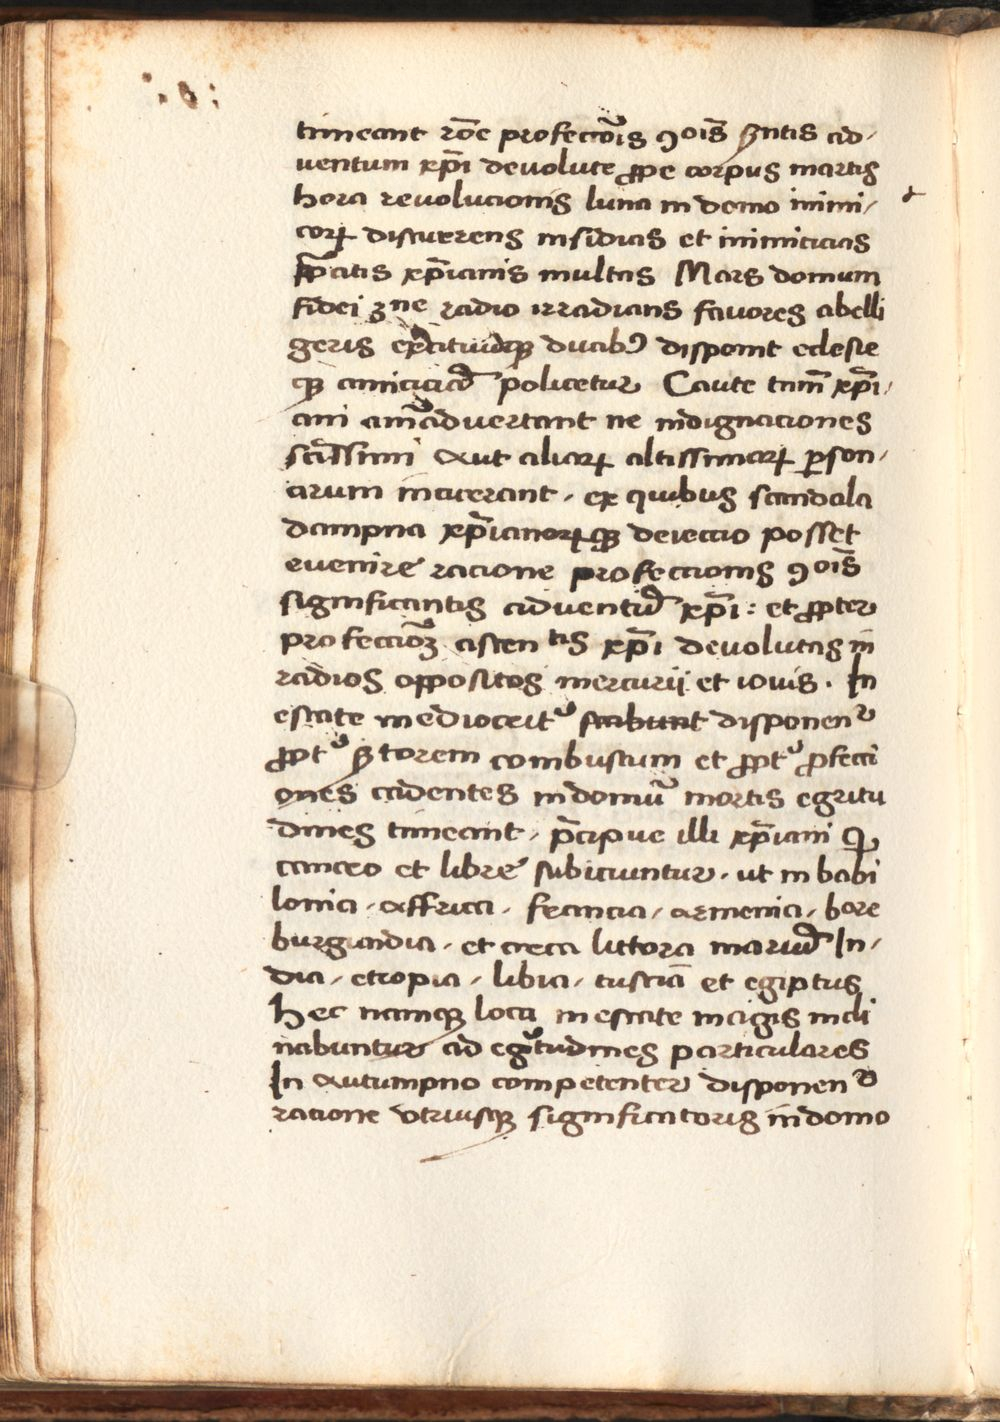 timeant rōe profectōis ꝯois̄ ꝯntis ad-
ventum xp̄i devolute ꝓpe corpus martis
hora revolucionis luna in domo inimi-
corꝝ discurrens insidias et inimicicias
xp̄ianis multas Mars domum
fidei radio irradians favores abelli
geris ducibꝰ disponit eclesie
qꝫ policetur Caute tam̄ xp̄i-
ani advertant ne indignaciones
aut aliorꝝ altissimorꝝ ꝑson-
arum incurrant. ex quibus scandala
dampna xp̄ianorꝝqꝫ deieccio posset
evenire racione profeccionis ꝯois̄
significantis adventū xp̄i: et ꝓpter
profeccioꝫ ascentis xp̄i devolutas in
radios oppositos mercurii et iovis. In
estate mediocritᵉ scabunt disponenᵗ
ꝓptᵉ torem combustum et ꝓptᵉ ꝓfecci
ones cadentes in domū mortis egritu
dines timeant, p̄cipue illi xp̄iani qͥ
cancro et libre subiciuntur. ut in babi
lonia. affrica. francia, armenia. bore
burgundia. et circa littora mariū In-
dia, etiopia, libia, tuscia et egiptus
Hec namqꝫ loca in estate magis incli
nabuntur ad egᵉtudines particulares
In autumpno competenter disponenᵗ
racione utriusqꝫ significatoris in domo